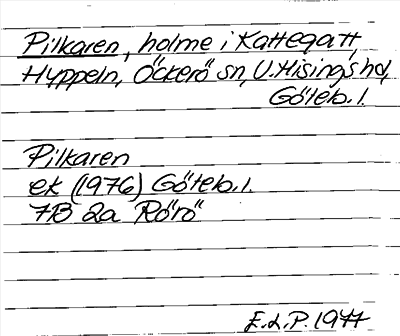 Pilkaren, holme i Kattegatt,
Hyppeln, Öckerö sn, V. Hisings hd,
Göteb. l.
Pilkaren
ek (1976) Göteb. l.
7B 2a Rörö
E.L.P. 1977